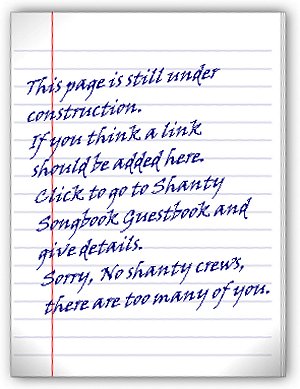 This page is still under
construction.
If you think a link
should be added here.
Click to go to Shanty
Songbook Guestbook and
give details.
Sorry, No shanty crews,
there are too many of you.